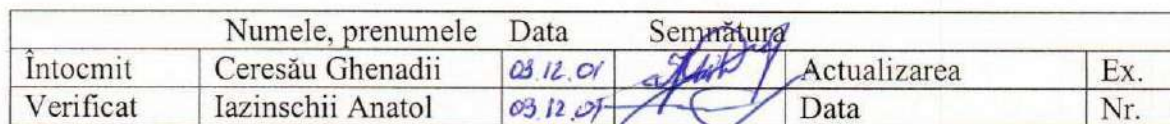 Numele, prenumele Data Semnătura
Întocmit Ceresău Ghenadii Actualizarea Ex.
Verificat Iazinschii Anatol Data Nr.